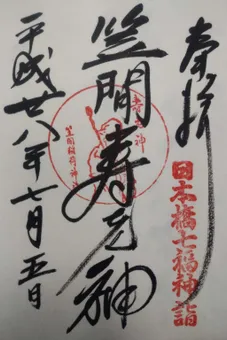 奉拝
日本橋七福神詣
笠間寿老神
寿老神
笠間稲荷神社
平成廿八年七月五日